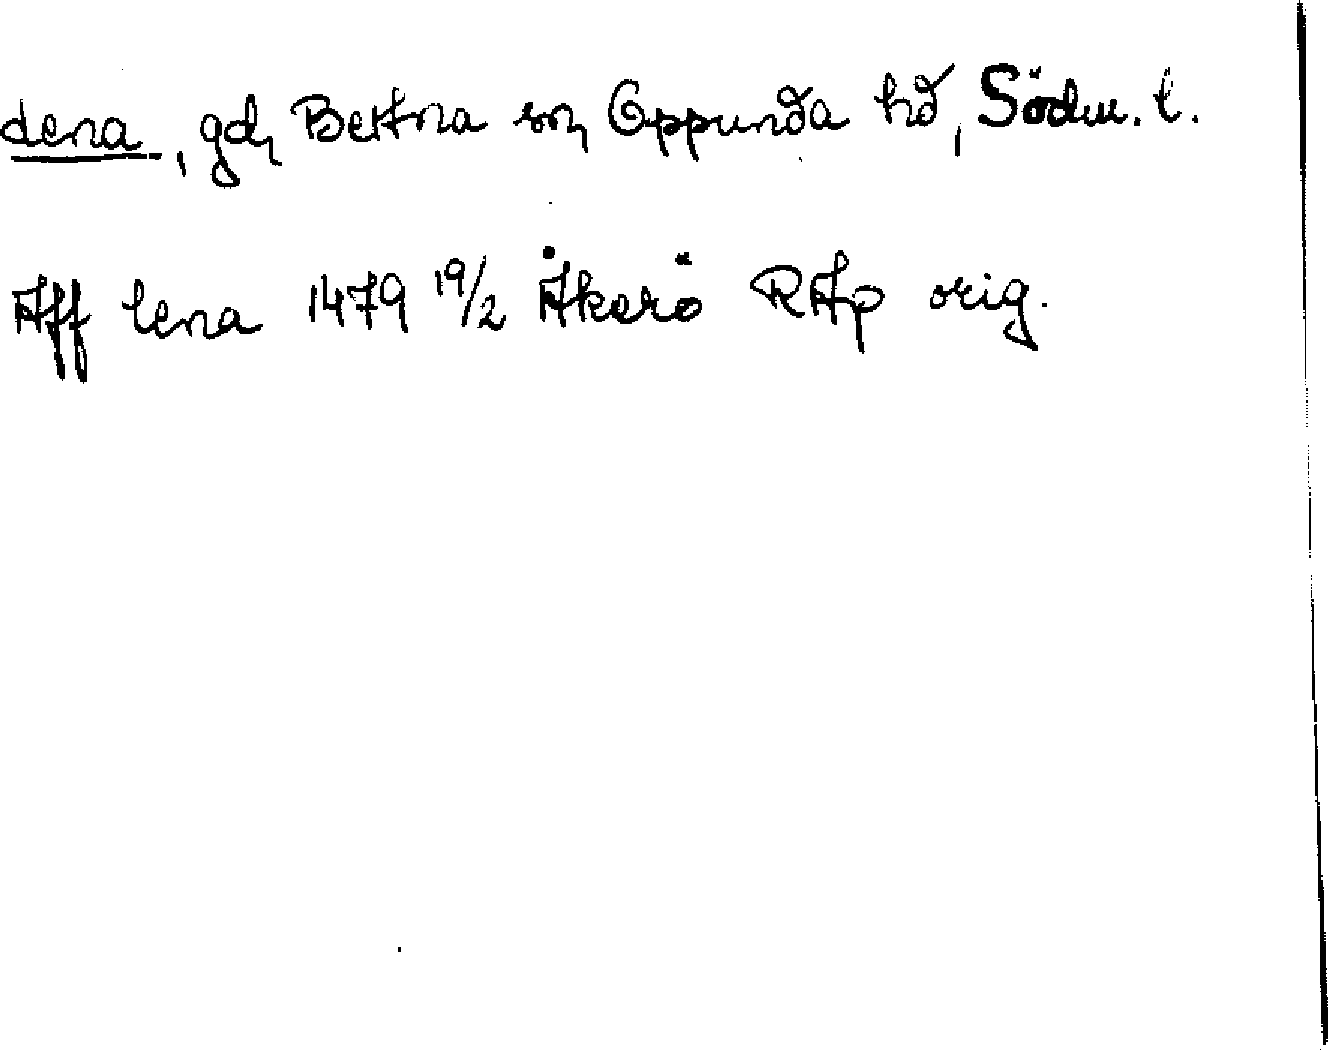 Lena, gd, Bettna sn, Oppunda hd, Södm. l.
Aff lena 1479 19/2 Åkerö RAp orig.